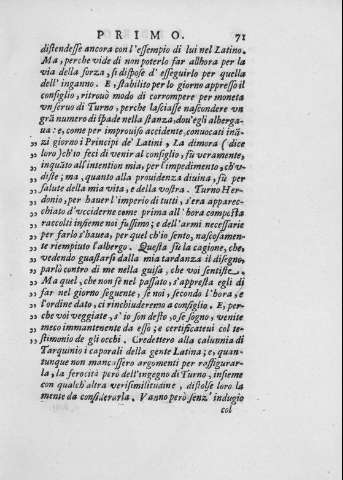 PRIMO. 71
distendesse ancora con l'essempio di lui nel Latino.
Ma, perche vide di non poterlo far allhora per la
via della forza, si dispose d'esseguirlo per quella
dell'inganno. E, stabilito per lo giorno appresso il
consiglio, ritrouò modo di corrompere per moneta
vn seruo di Turno, perche lasciasse nascondere vn
grā numero di spade nella stanza, dou'egli alberga-
ua: e, come per improuiso accidente, conuocati inā-
zi giorno i Principi de' Latini, La dimora (dice
„ loro) ch'io feci di venir al consiglio, fù veramente,
„ inquāto all'intention mia, per l'impedimento, ch'v-
„ diste; ma, quanto alla prouidenza diuina, fù per
„ salute della mia vita, e della vostra. Turno Her-
„ donio, per hauer l'imperio di tutti, s'era apparec-
„ chiato d'vcciderne come prima all'hora composta
„ raccolti insieme noi fussimo; e dell'armi necessarie
„ per farlo s'haueva, per quel ch'io sento, nascosamen-
„ te riempiuto l'albergo. Questa fù la cagione, che,
„ vedendo guastarsi dalla mia tardanza il disegno,
„ parlò contro di me nella guisa, che voi sentiste.
„ Ma quel, che non fè nel passato, s'appresta egli di
„ far nel giorno seguente, se noi, secondo l'hora, e
„ l'ordine dato, ci rinchiuderemo a consiglio. E, per-
„ che voi veggiate, s'io son desto, o se sogno, venite
„ meco immantenente da esso; e certificateui col te-
„ stimonio de gli occhi. Credettero alla calunnia di
Tarquinio i caporali della gente Latina; e, quan-
tunque non mancassero argomenti per rassigurar-
la, la ferocità però dell'ingegno di Turno, insieme
con qualch'altra verisimilitudine, distolse loro la
mente da considerarla. Vanno però senz'indugio
col